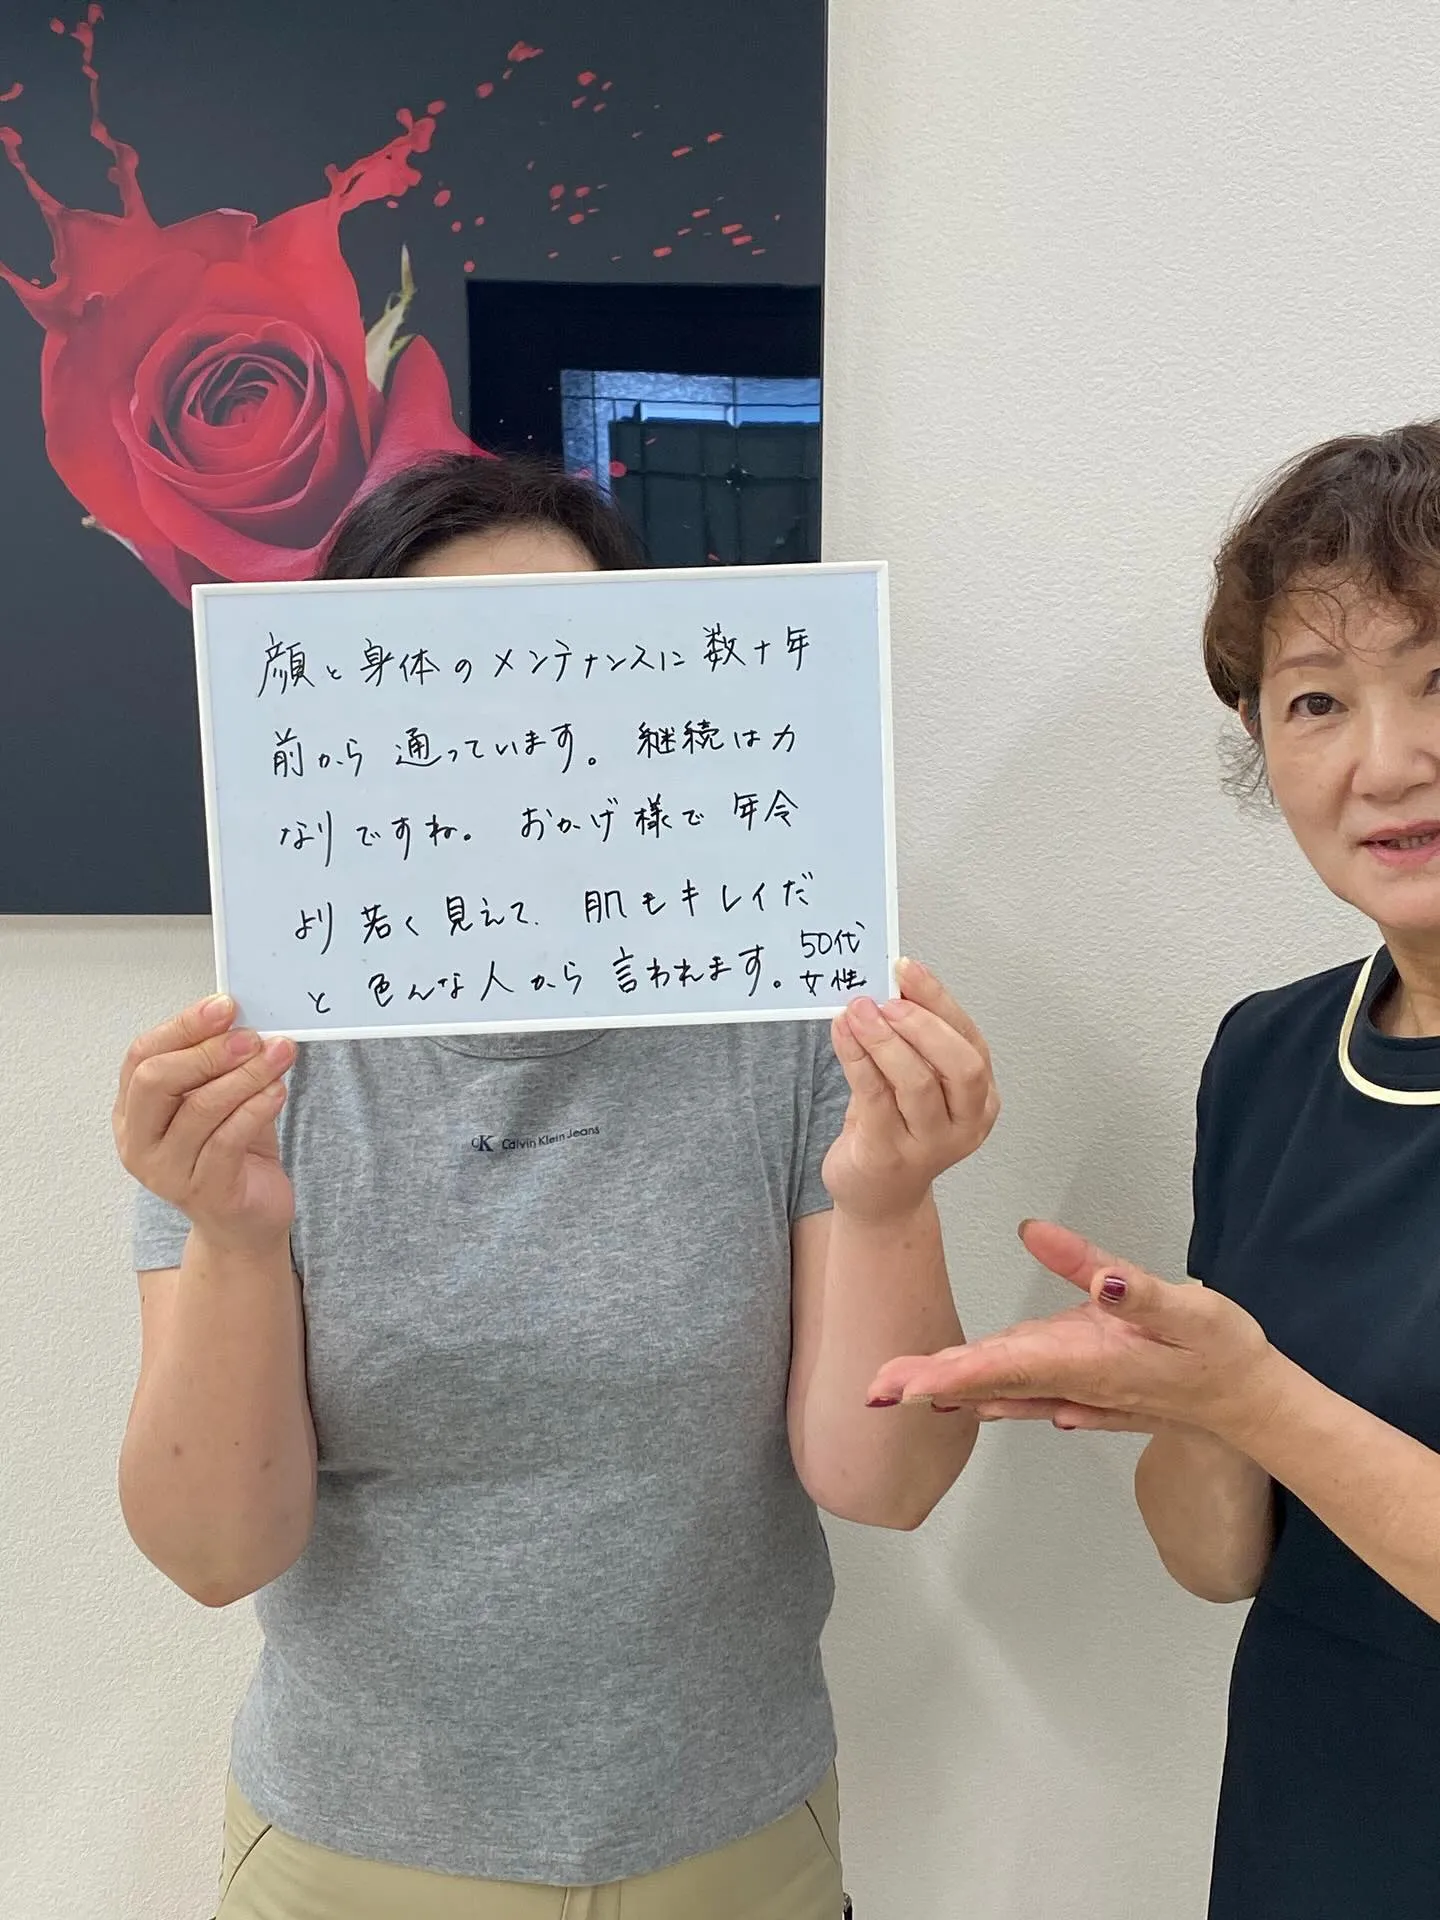 顔と身体のメンテナンスに数十年
前から通っています。継続は力
なりですね。おかげ様で年令
より若く見えて、肌もキレイだ
と色んな人から言われます。
50代
女性
cK Calvin Klein Jeans